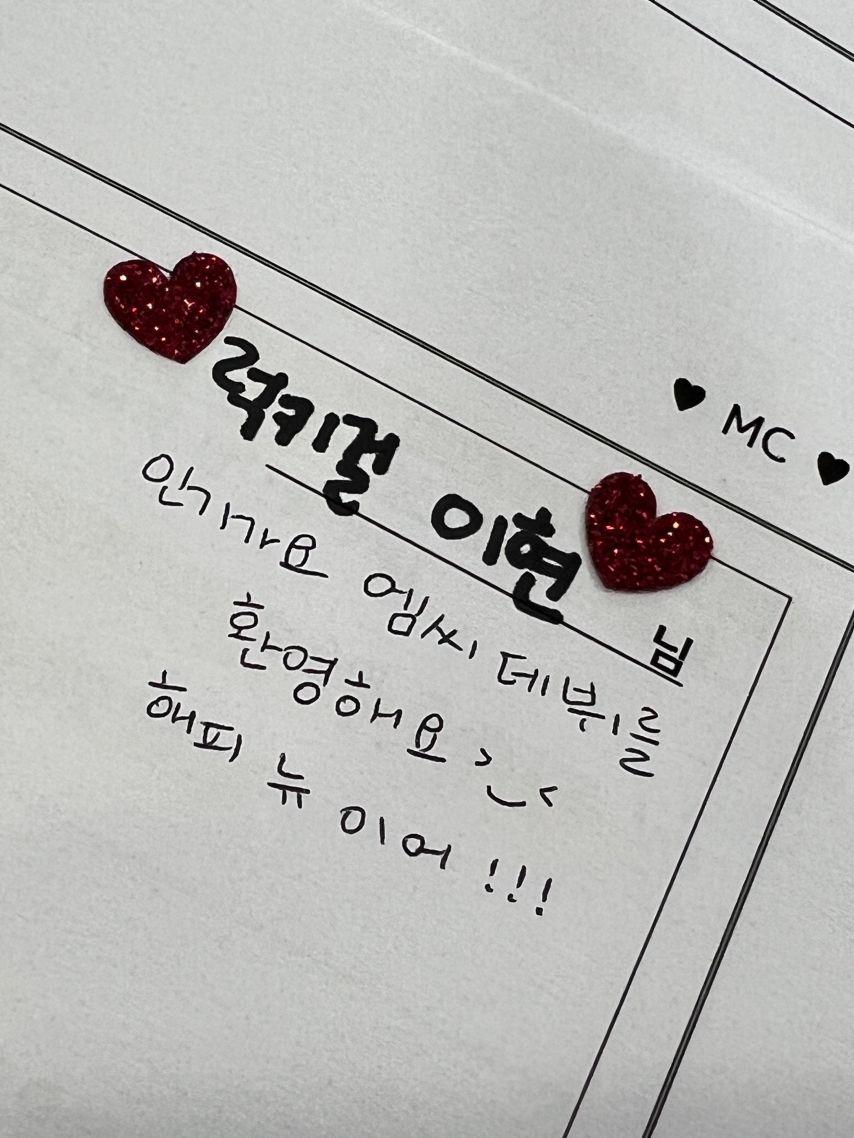 ♥ MC ♥
럭키걸 이현 님
인가요 엠씨 데뷔를
환영해요 >‿<
해피 뉴 이어 !!!